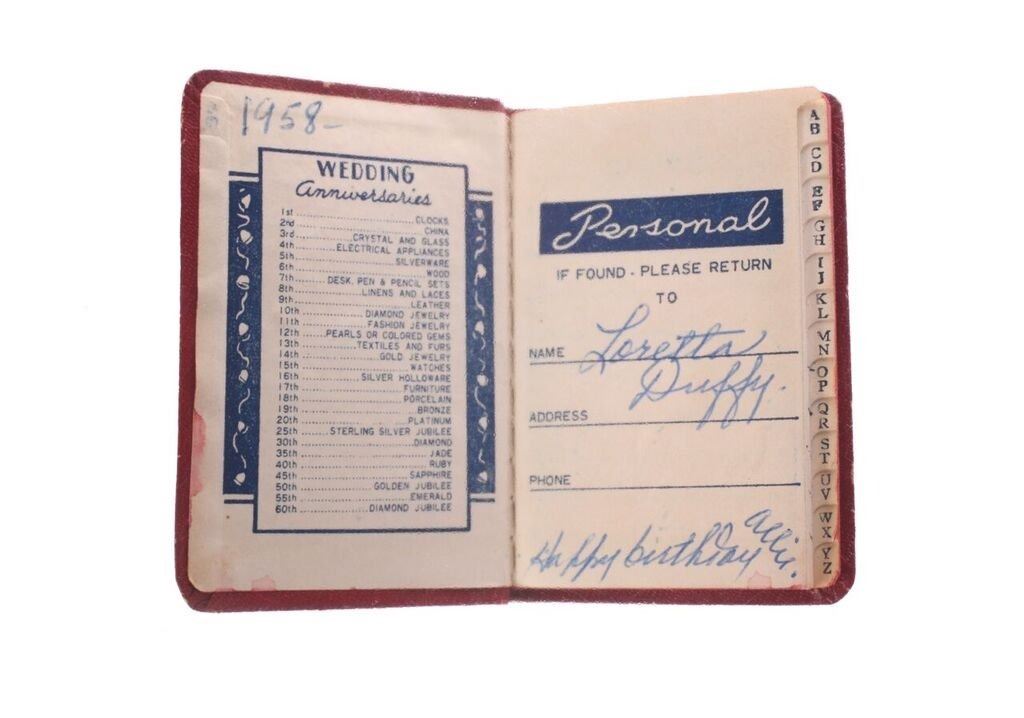 1958-
WEDDING
Anniversaries
1st....................CLOCKS
2nd....................CHINA
3rd............CRYSTAL AND GLASS
4th.........ELECTRICAL APPLIANCES
5th....................SILVERWARE
6th....................WOOD
7th........DESK, PEN & PENCIL SETS
8th.............LINENS AND LACES
9th....................LEATHER
10th.............DIAMOND JEWELRY
11th.............FASHION JEWELRY
12th......PEARLS OR COLORED GEMS
13th...........TEXTILES AND FURS
14th................GOLD JEWELRY
15th....................WATCHES
16th............SILVER HOLLOWARE
17th....................FURNITURE
18th....................PORCELAIN
19th....................BRONZE
20th....................PLATINUM
25th.......STERLING SILVER JUBILEE
30th....................DIAMOND
35th....................JADE
40th....................RUBY
45th....................SAPPHIRE
50th..............GOLDEN JUBILEE
55th....................EMERALD
60th.............DIAMOND JUBILEE
Personal
IF FOUND - PLEASE RETURN
TO
NAME Loretta
Duffy.
ADDRESS
PHONE
Happy birthday Allie.
A
B
C
D
E
F
G
H
I
J
K
L
M
N
O
P
Q
R
S
T
U
V
W
X
Y
Z